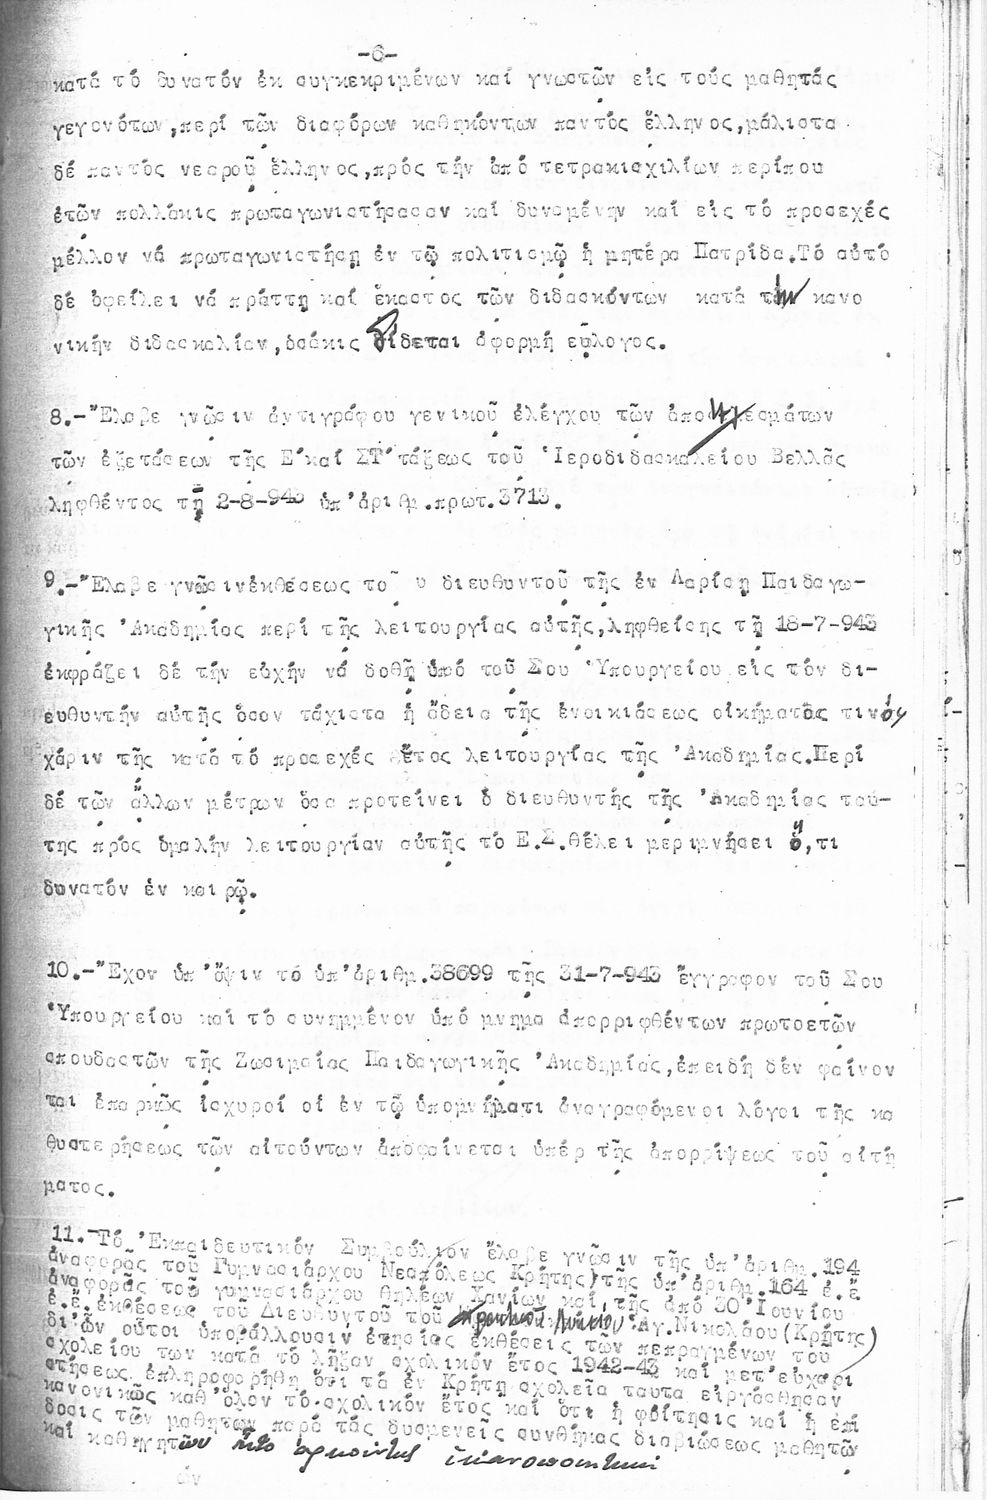 -6-
κατά τό δυνατόν ἐκ συγκεκριμένων καί γνωστῶν εἰς τούς μαθητάς
γεγονότων,περί τῶν διαφόρων καθηκόντων παντός ἕλληνος,μάλιστα
δέ παντός νεαροῦ ἕλληνος,πρός τήν ἀπό τετρακισχιλίων περίπου
ἐτῶν πολλάκις πρωταγωνιστήσασαν καί δυναμένην καί εἰς τό προσεχές
μέλλον νά πρωταγωνιστήσῃ ἐν τῷ πολιτισμῷ ἡ μητέρα Πατρίδα.Τό αὐτό
δέ ὀφείλει νά πράττῃ καί ἕκαστος τῶν διδασκόντων κατά τήν κανο
νικήν διδασκαλίαν,ὁσάκις δίδεται ἀφορμή εὔλογος.
8.-Ἔλαβε γνῶσιν ἀντιγράφου γενικοῦ ἐλέγχου τῶν ἀποτελεσμάτων
τῶν ἐξετάσεων τῆς Ε΄καί ΣΤ΄τάξεως τοῦ Ἱεροδιδασκαλείου Βελλᾶς
ληφθέντος τῇ 2-8-943 ὑπ'ἀριθμ.πρωτ.3713.
9.-Ἔλαβε γνῶσινἐκθέσεως το῀ υ διευθυντοῦ τῆς ἐν Λαρίσῃ Παιδαγω-
γικῆς Ἀκαδημίας περί τῆς λειτουργίας αὐτῆς,ληφθείσης τῇ 18-7-943
ἐκφράζει δέ τήν εὐχήν νά δοθῇ ὑπό τοῦ Σου Ὑπουργείου εἰς τόν δι-
ευθυντήν αὐτῆς ὅσον τάχιστα ἡ ἄδεια τῆς ἐνοικιάσεως οἰκήματος τινός
χάριν τῆς κατά τό προσεχές ἔτος λειτουργίας τῆς Ἀκαδημίας.Περί
δέ τῶν ἄλλων μέτρων ὅσα προτείνει ὁ διευθυντής τῆς Ἀκαδημίας ταύ-
της πρός ὁμαλήν λειτουργίαν αὐτῆς τό Ε.Σ.θέλει μεριμνήσει ὅ,τι
δυνατόν ἐν καιρῷ.
10.-Ἔχον ὑπ'ὄψιν τό ὑπ'ἀριθμ.38699 τῆς 31-7-943 ἔγγραφον τοῦ Σου
Ὑπουργείου καί τό συνημμένον ὑπό μνημα ἀπορριφθέντων πρωτοετῶν
σπουδαστῶν τῆς Ζωσιμαίας Παιδαγωγικῆς Ἀκαδημίας,ἐπειδή δέν φαίνον
ται ἐπαρκῶς ἰσχυροί οἱ ἐν τῷ ὑπομνήματι ἀναγραφόμενοι λόγοι τῆς κα
θυστερήσεως τῶν αἰτούντων ἀποφαίνεται ὑπέρ τῆς ἀπορρίψεως τοῦ αἰτή
ματος.
11.-Τό Ἐκπαιδευτικόν Συμβούλιον ἔλαβε γνῶσιν τῆς ὑπ'ἀριθμ.194
ἀναφορᾶς τοῦ Γυμνασιάρχου Νεαπόλεως Κρήτης,τῆς ὑπ'ἀριθμ.164 ἐ.ἔ
ἀναφορᾶς τοῦ γυμνασιάρχου θηλέων Χανίων καί τῆς ἀπό 30 Ἰουνίου
ἐ.ἔ.ἐκθέσεως τοῦ Διευθυντοῦ τοῦ Πρακτικοῦ Λυκείου Ἁγ.Νικολάου(Κρήτης)
δι'ὧν οὗτοι ὑποβάλλουσιν ἐτησίας ἐκθέσεις τῶν πεπραγμένων τοῦ
σχολείου των κατά τό λῆξαν σχολικόν ἔτος 1942-43 καί μετ'εὐχαρι
στήσεως ἐπληροφορήθη ὅτι τά ἐν Κρήτῃ σχολεῖα ταῦτα εἰργάσθησαν
κανονικῶς καθ'ὅλον τό σχολικόν ἔτος καί ὅτι ἡ φοίτησις καί ἡ ἐπί
δοσις τῶν μαθητῶν παρά τάς δυσμενεῖς συνθήκας διαβιώσεως μαθητῶν
καί καθηγητῶν ἦτο ἀρκούντως ἱκανοποιητική